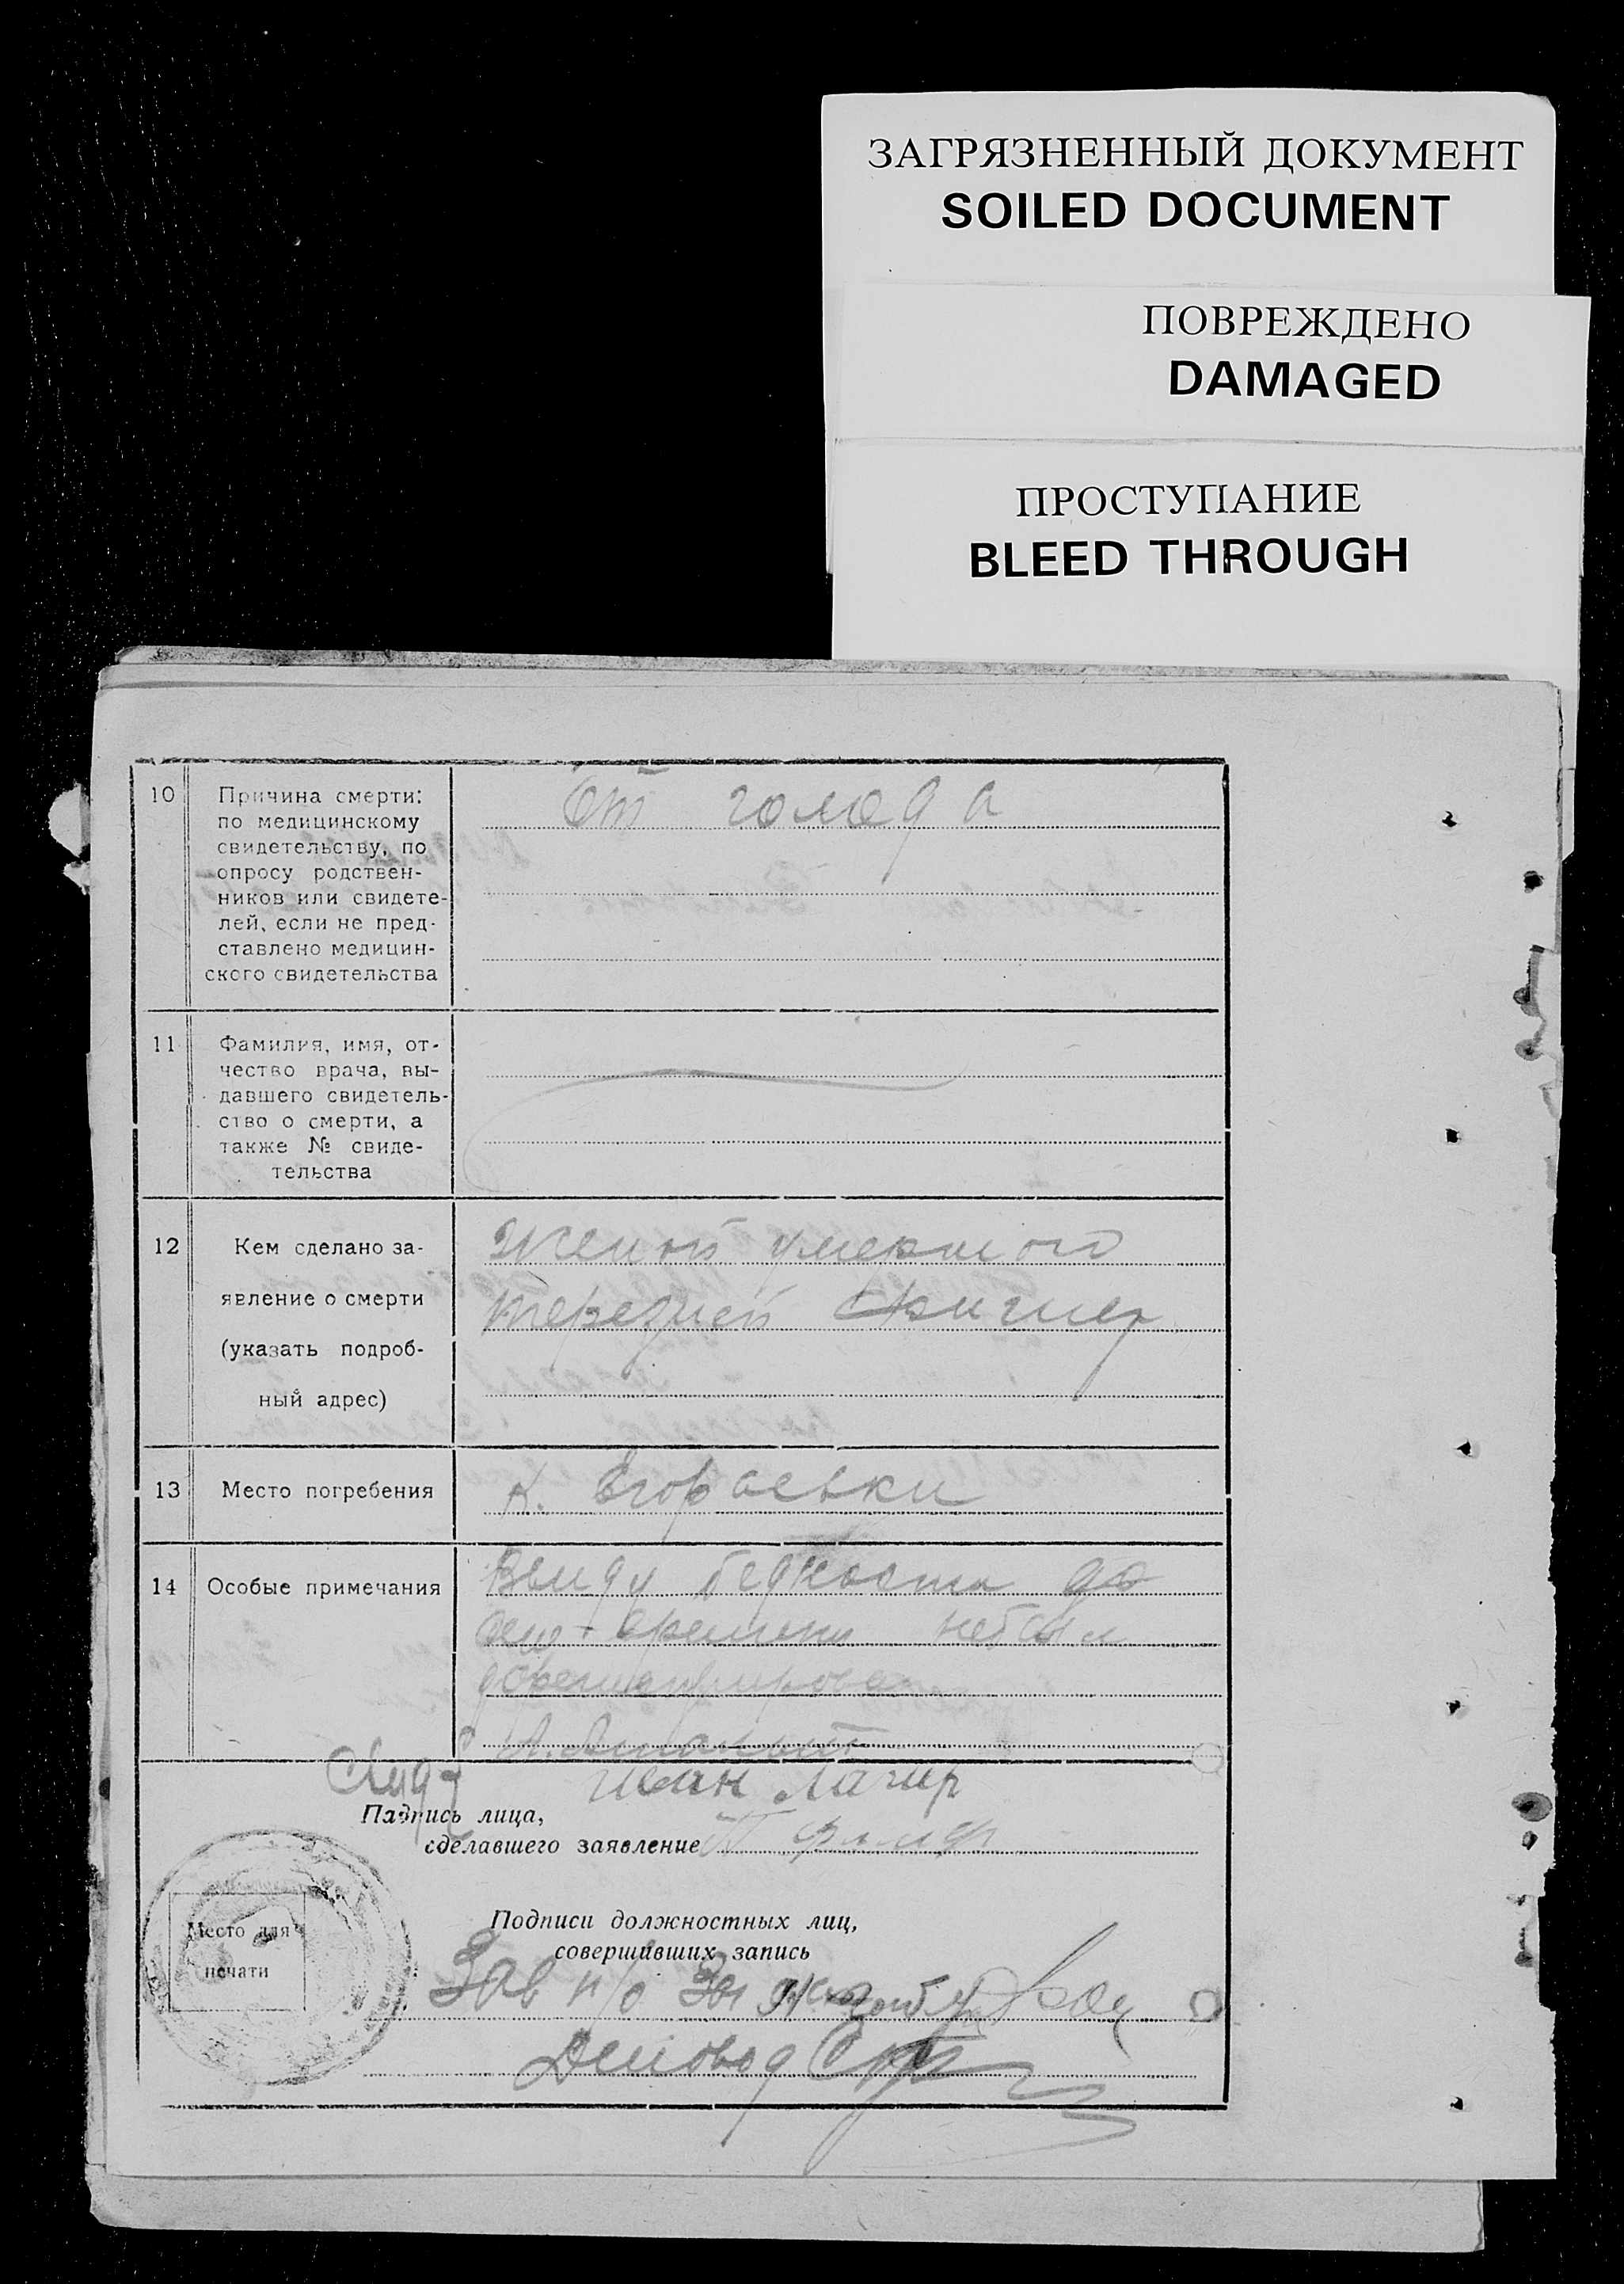 ЗАГРЯЗНЕННЫЙ ДОКУМЕНТ
SOILED DOCUMENT
ПОВРЕЖДЕНО
DAMAGED
ПРОСТУПАНИЕ
BLEED THROUGH
10
Причина смерти:
по медицинскому
свидетельству, по
опросу родствен-
ников или свидете-
лей, если не пред-
ставлено медицин-
ского свидетельства
От голода
11
Фамилия, имя, от-
чество врача, вы-
давшего свидетель-
ство о смерти, а
также № свиде-
тельства
12
Кем сделано за-
явление о смерти
(указать подроб-
ный адрес)
Женой умершого
терезией
13
Место погребения
к. Егоровки
14
Особые примечания
Ввиду бедности до
времени небыл
Иван
Подпись лица,
сделавшего заявление
Место для
печати
Подписи должностных лиц,
совершивших запись
Зав п/о
Деловод